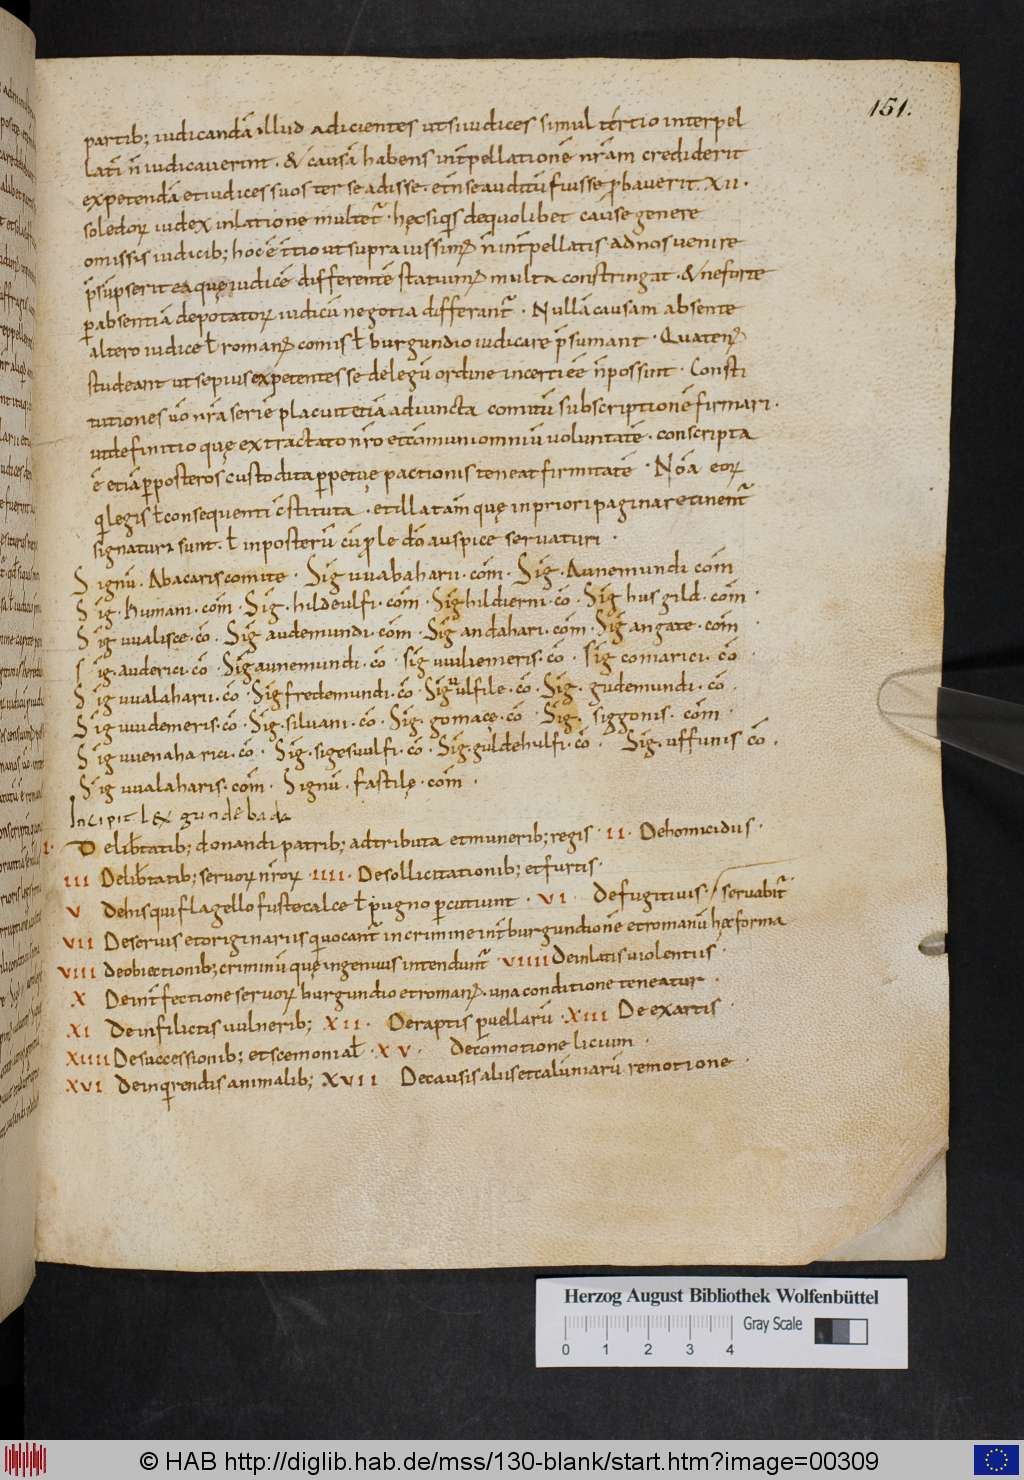 151.
partib; iudicandā illud adicientes utsiiudices simul tertio interpel
lati n̄ iudicauerint · & causā habens int̄pellationē nr̄am crediderit
expetendā etiudices suos ter se adisse · etn̄seauditū fuisse ꝓbauerit · XII ·
soledoꝝ iudex inlatione multet᷑ · hęcsiqi̅s dequolibet cause genere
omissis iudicib; hocē t̄tio utsupraiussim᷒ n̄int̄pellatis adnosuenire
p̄sūpserit eaquę iudicē differentē statuim᷒ multa constringat · & neforte
ꝑabsentiā depotatoꝝ iudicū negotia differant᷑ · Nullā causam absente
altero iudice ł roman᷒ comis ł burgundio iudicare p̄sumant · Quaten᷒
studeant ut sepius expetentes se delegū ordine incerti eē n̄possint · Consti
tutiones uō nr̄a serie placuit etiā adiuncta comitū subscriptionē firmari ·
utdefinitio quę extractato nr̄o etcōmuni omniū uoluntatē · conscripta
ē etiā ꝑposteros custodita ꝑpetuę pactionis teneat firmitatē · Nōa eoꝝ
qi̅ legis ł consequenti c̄stituta · etilla tam̄ quę inpriori pagina retinent᷑
signatura sunt · ł inposterū cū ꝓle dō auspice seruaturi ·
Signū · Abacaris comite · Sig uuabaharii · com̄ · Sig · Aunemundi com̄
Sig · Kumani · com̄ · Sig · hildeulfi · com̄ · Sig hildierni · cō · Sig husgild · com̄ ·
Sig uualisce · cō · Sig audemundi · com̄ · Sig andahari · com̄ · Sig angate · com̄ ·
Sig · auderici · cō · Sig aunemundi · cō · sig uuiliemeris · cō · sig comarici · cō ·
Sig uualaharii · cō · Sig fredemundi · cō · Sig uulfile · cō · Sig · gudemundi · cō ·
Sig uuidemeris · cō · Sig · siluani · cō · Sig · gomacę · cō · Sig · siggonis · com̄ ·
Sig uuenaharici · cō · Sig · sigesuulfi · cō · Sig · guldehulfi · cō · Sig · uffunis cō ·
Sig uualaharis · com̄ · Signū · fastilę · com̄ ·
Incipit lex gundebada
I · De lib̄tatib; donandi patrib; adtributa etmunerib; regis · II · Dehomicidiis ·
III Delib̄tatib; seruoꝝ nr̄oꝝ · IIII · Desollicitationib; etfurtis ·
V Dehis quiflagello fustecalce ł pugno ꝑcutiunt · VI · Defugitiuis · / seruabit᷑
VII Deseruis etoriginariis qi̅ uocant᷑ incrimine int̄ burgundionē etromanū hęc forma
VIII Deobiectionib; criminū quę ingenuus intendunt᷑ · VIIII Deinlatis uiolentiis ·
X Deint̄fectione seruoꝝ burgundio etroman᷒ · una conditione teneatur ·
XI Deinfilictis uulnerib; XII · Deraptis puellarū · XIII De exartis ·
XIIII Desuccessionib; etscemoniał · XV · Decōmotione licium ·
XVI Deinqi̅rendis animalib; XVII Decausis aliis etcalūniarū remotione ·
Herzog August Bibliothek Wolfenbüttel
Gray Scale
0 1 2 3 4
© HAB http://diglib.hab.de/mss/130-blank/start.htm?image=00309